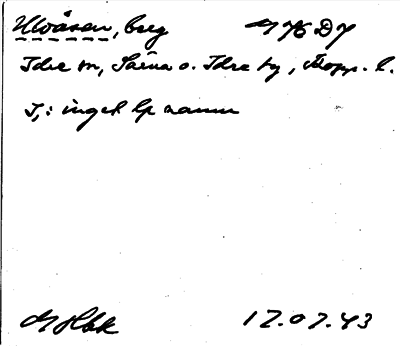 Ulvåsen, berg
Idre sn, Särna o. Idre tg, Kopp. l.
I,: inget lp namn
17.07.43